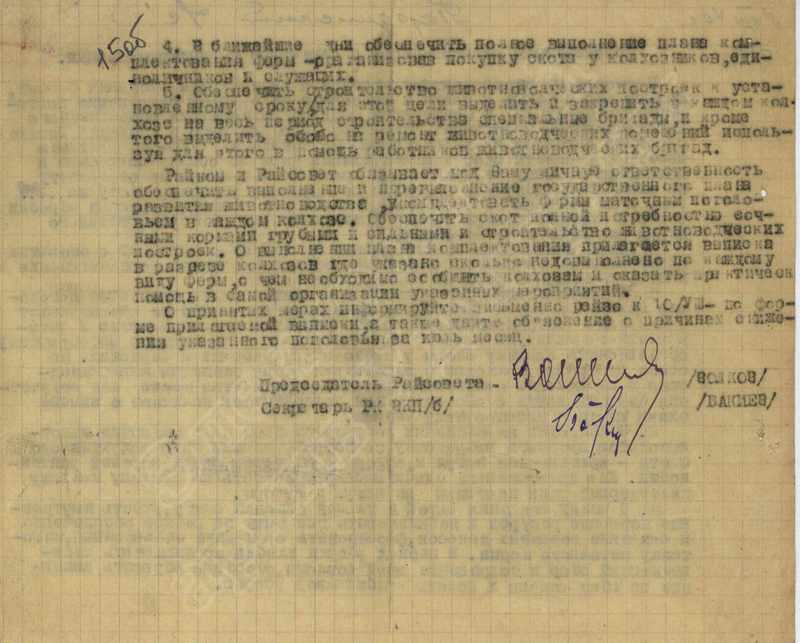 15об
4. В ближайшие дни обеспечить полное выполнение плана ком-
плектования ферм -организовав покупку скота у колхозников,еди-
воличников и служащих.
5. Обеспечить строительство животноводческих построек к уста-
новленному сроку,для этой цели выделить и закрепить в каждом кол-
хозе на весь период строительства специальные бригады,и кроме
того выделить особо на ремонт животноводческих помещений исполь-
зуя для этого в помощь работников животноводческих бригад.
Райком и Райсовет обязывает под Вашу личную ответственность
обеспечить выполнение и перевыполнение государственного плана
развития животноводства ,укомплектовать фермы маточным поголо-
вьем в каждом колхозе. Обеспечить скот полной потребностью соч-
ными кормами грубыми и сильными и строительство животноводческих
построек. О выполнении плана комплектования прилагается выписка
в разрезе колхозов где указано сколько недовыполнено по каждому
виду ферм,о чем необходимо сообщить колхозам и оказать практическ
помощь в самой организации указанных мероприятий.
О принятых мерах информируйте письменно райзо к 10/VII- по фор-
ме прилагаемой выписки,а также дайте объяснение о причинах сниже-
ния указанного поголовья за июль месяц.
Председатель Райсовета - /ВОЛКОВ/
Секретарь РК ВКП/б/ /ВАКИЕВ/